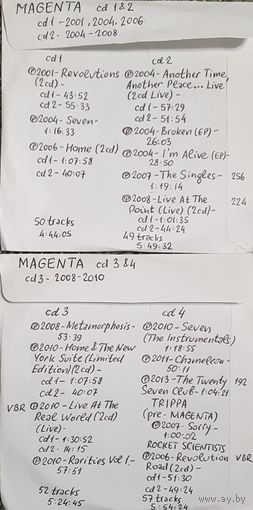 MAGENTA cd 1&2
cd1 - 2001, 2004, 2006
cd2 - 2004 - 2008
cd1
℗2001-Revolutions
(2cd) -
cd1 - 43:52
cd2 - 55:33
℗2004-Seven-
1:16:33
℗2006-Home (2cd)
cd1 - 1:07:58
cd2 - 40:07
50 tracks
4:44:05
cd2
℗2004-Another Time,
Another Place... Live
(2cd Live) -
cd1 - 57:29
cd2 - 51:54
℗2004-Broken (EP) -
26:03
℗2004-I'm Alive (EP)-
28:50
℗2007-The Singles- 256
1:19:14
℗2008-Live At The 224
Point (Live) (2cd)-
cd1-1:01:35
cd2-44:24
49 tracks
5:49:32
MAGENTA cd 3&4
cd3 - 2008-2010
cd3
℗2008-Metamorphosis-
53:39
℗2010-Home & The New
York Suite (Limited
Edition)(2cd)-
cd1 - 1:07:58
cd2 - 40:07
VBR ℗2010-Live At The
Real World (2cd)
(Live)-
cd1 - 1:30:52
cd2 - 14:15
℗2010-Rarities Vol 1.-
57:51
52 tracks
5:24:45
cd4
℗2010-Seven
(The Instrumentals)
1:18:55
℗2011-Chameleon-
50:11
℗2013-The Twenty 192
Seven Club-1:04:21
TRIPPA
(pre-MAGENTA)
℗2007-Sorry-
1:00:02
ROCKET SCIENTISTS
℗2006-Revolution VBR
Road (2cd)-
cd1-51:30
cd2-49:24
57 tracks
5:54:24
www.ay.by